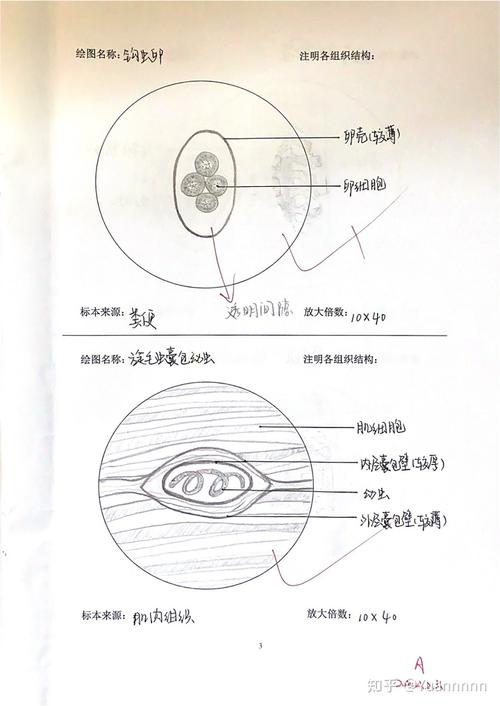 绘图名称：钩虫卵 注明各组织结构：
卵壳(较薄)
卵细胞
透明间隙
标本来源：粪便 放大倍数：10×40
绘图名称：旋毛虫囊包幼虫 注明各组织结构：
肌细胞
内层囊包壁(较厚)
幼虫
外层囊包壁(较薄)
标本来源：肌肉组织 放大倍数：10×40
3
A
知乎 @Yuannnnn